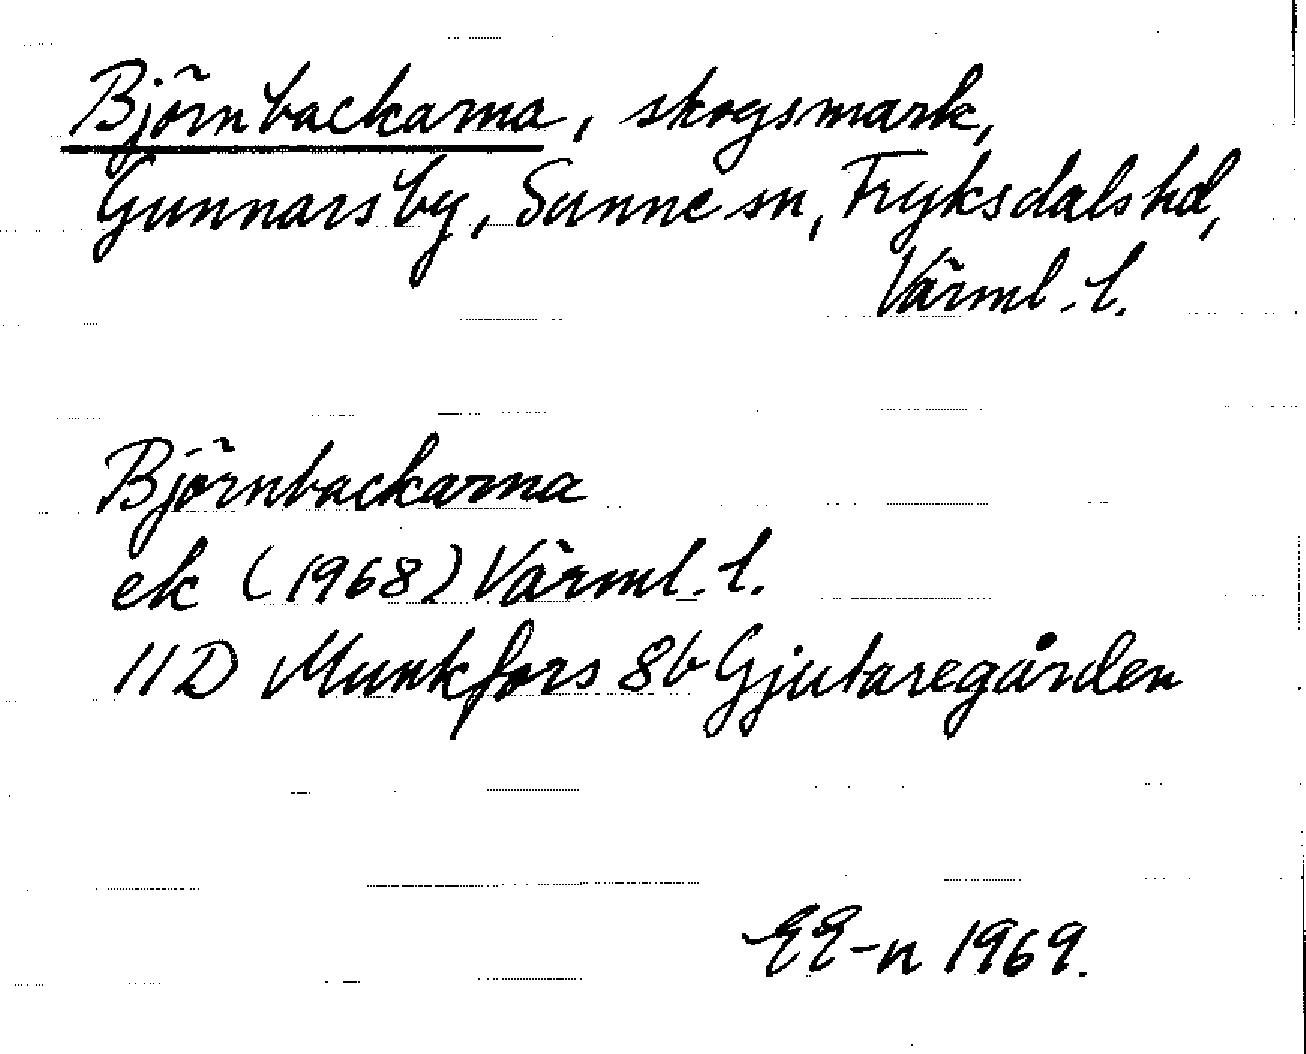 Björnbackarna, skogsmark,
Gunnarsby, Sunne sn, Fryksdals hd,
Värml. l.
Björnbackarna
ek (1968) Värml. l.
11D Munkfors 8b Gjutaregården
EE-n 1969.